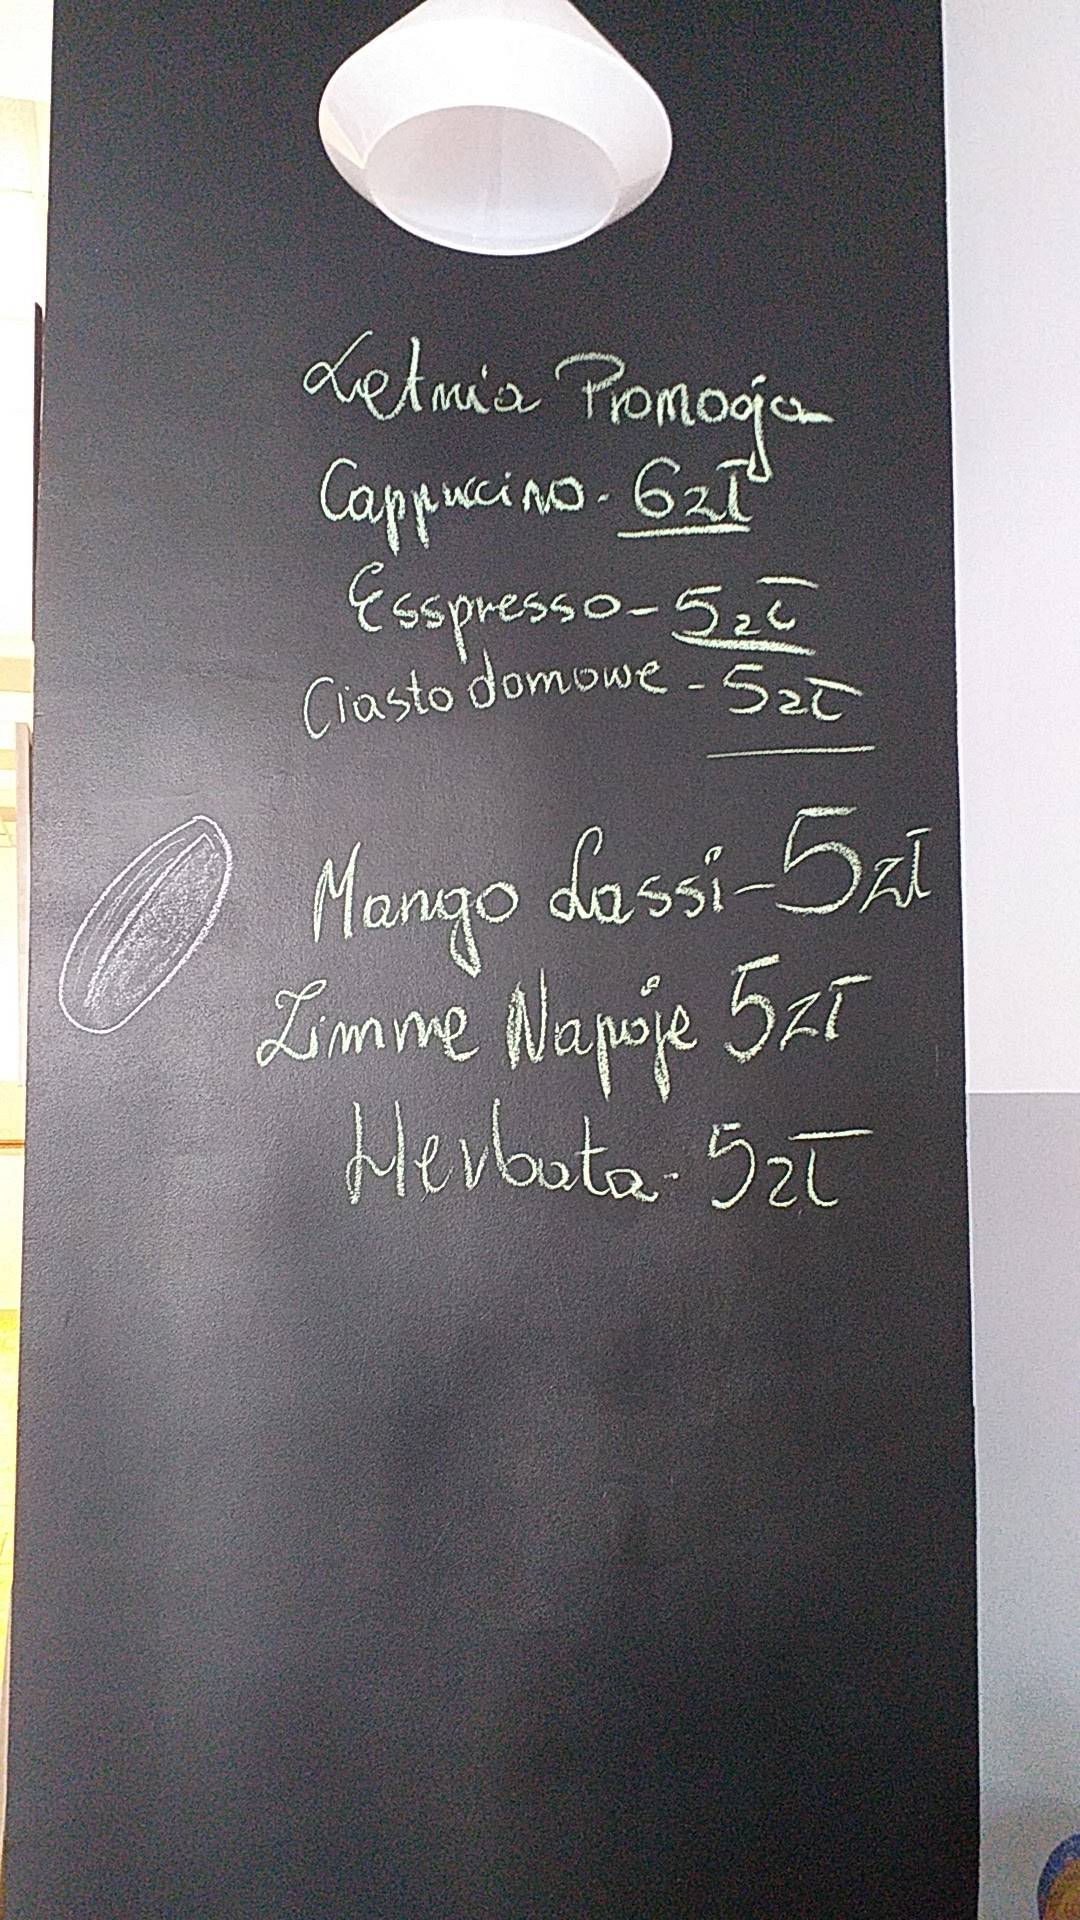 Letnia Promocja
Cappuccino - 6zł
Esspresso - 5zł
Ciasto domowe - 5zł
Mango Lassi - 5zł
Zimne Napoje 5zł
Herbata - 5zł